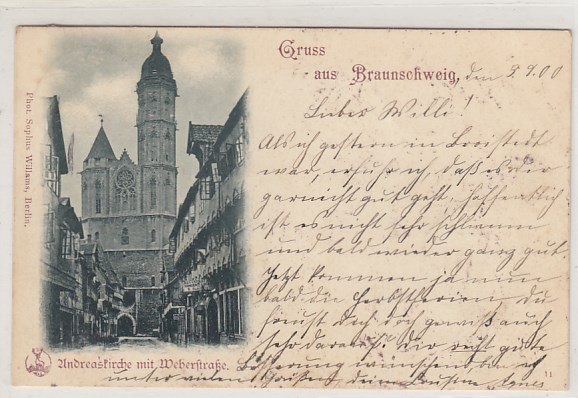 Gruss
aus Braunschweig, den 2.9.00
Lieber Willi!
Als ich gestern in Broistedt
war, erfuhr ich, daß es dir
garnicht gut geht, hoffentlich
ist es nicht sehr schlimm
und bald wieder ganz gut.
Jetzt kommen ja nun
bald die Herbstferien, du
freust Dich doch gewiß auch
sehr darauf? dir recht gute
Besserung wünschend
unter vielen Grüßen, deine Agnes
Andreaskirche mit Weberstraße.
Phot. Sophus Williams, Berlin.
11